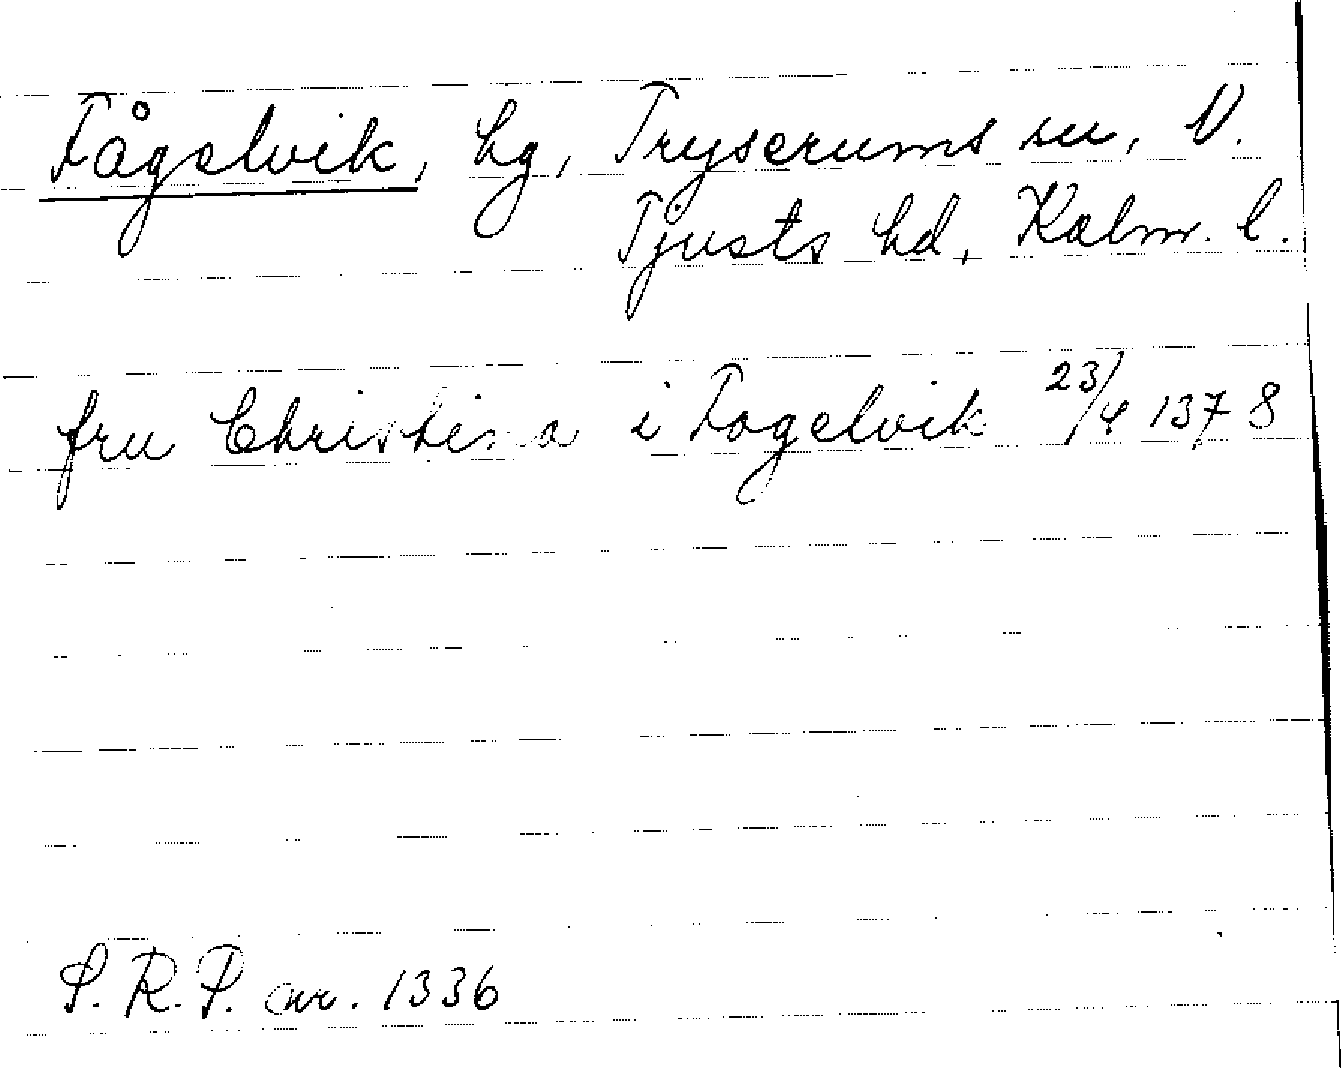 Fågelvik, hg, Tryserums sn, N.
Tjusts hd, Kalm. l.
fru Christina i Fogelvik 23/4 1378
S. R. P. nr. 1336